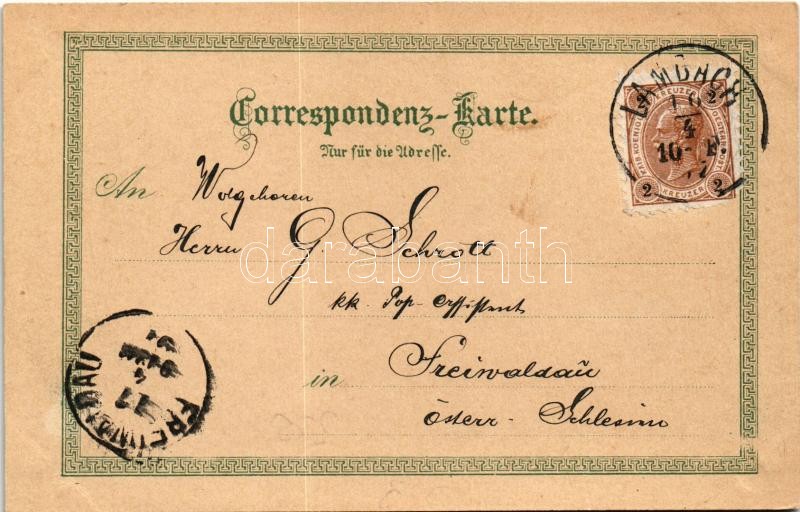 Correspondenz-Karte.
Nur für die Adresse.
An Wolgeboren
Herrn G. Schrott
kk. Assistent
in Freiwaldau
Österr. Schlesien
LAMBACH
10
4
10-F.
97
2 KREUZER 2
2 KREUZER 2
FREIWALDAU
darabanth